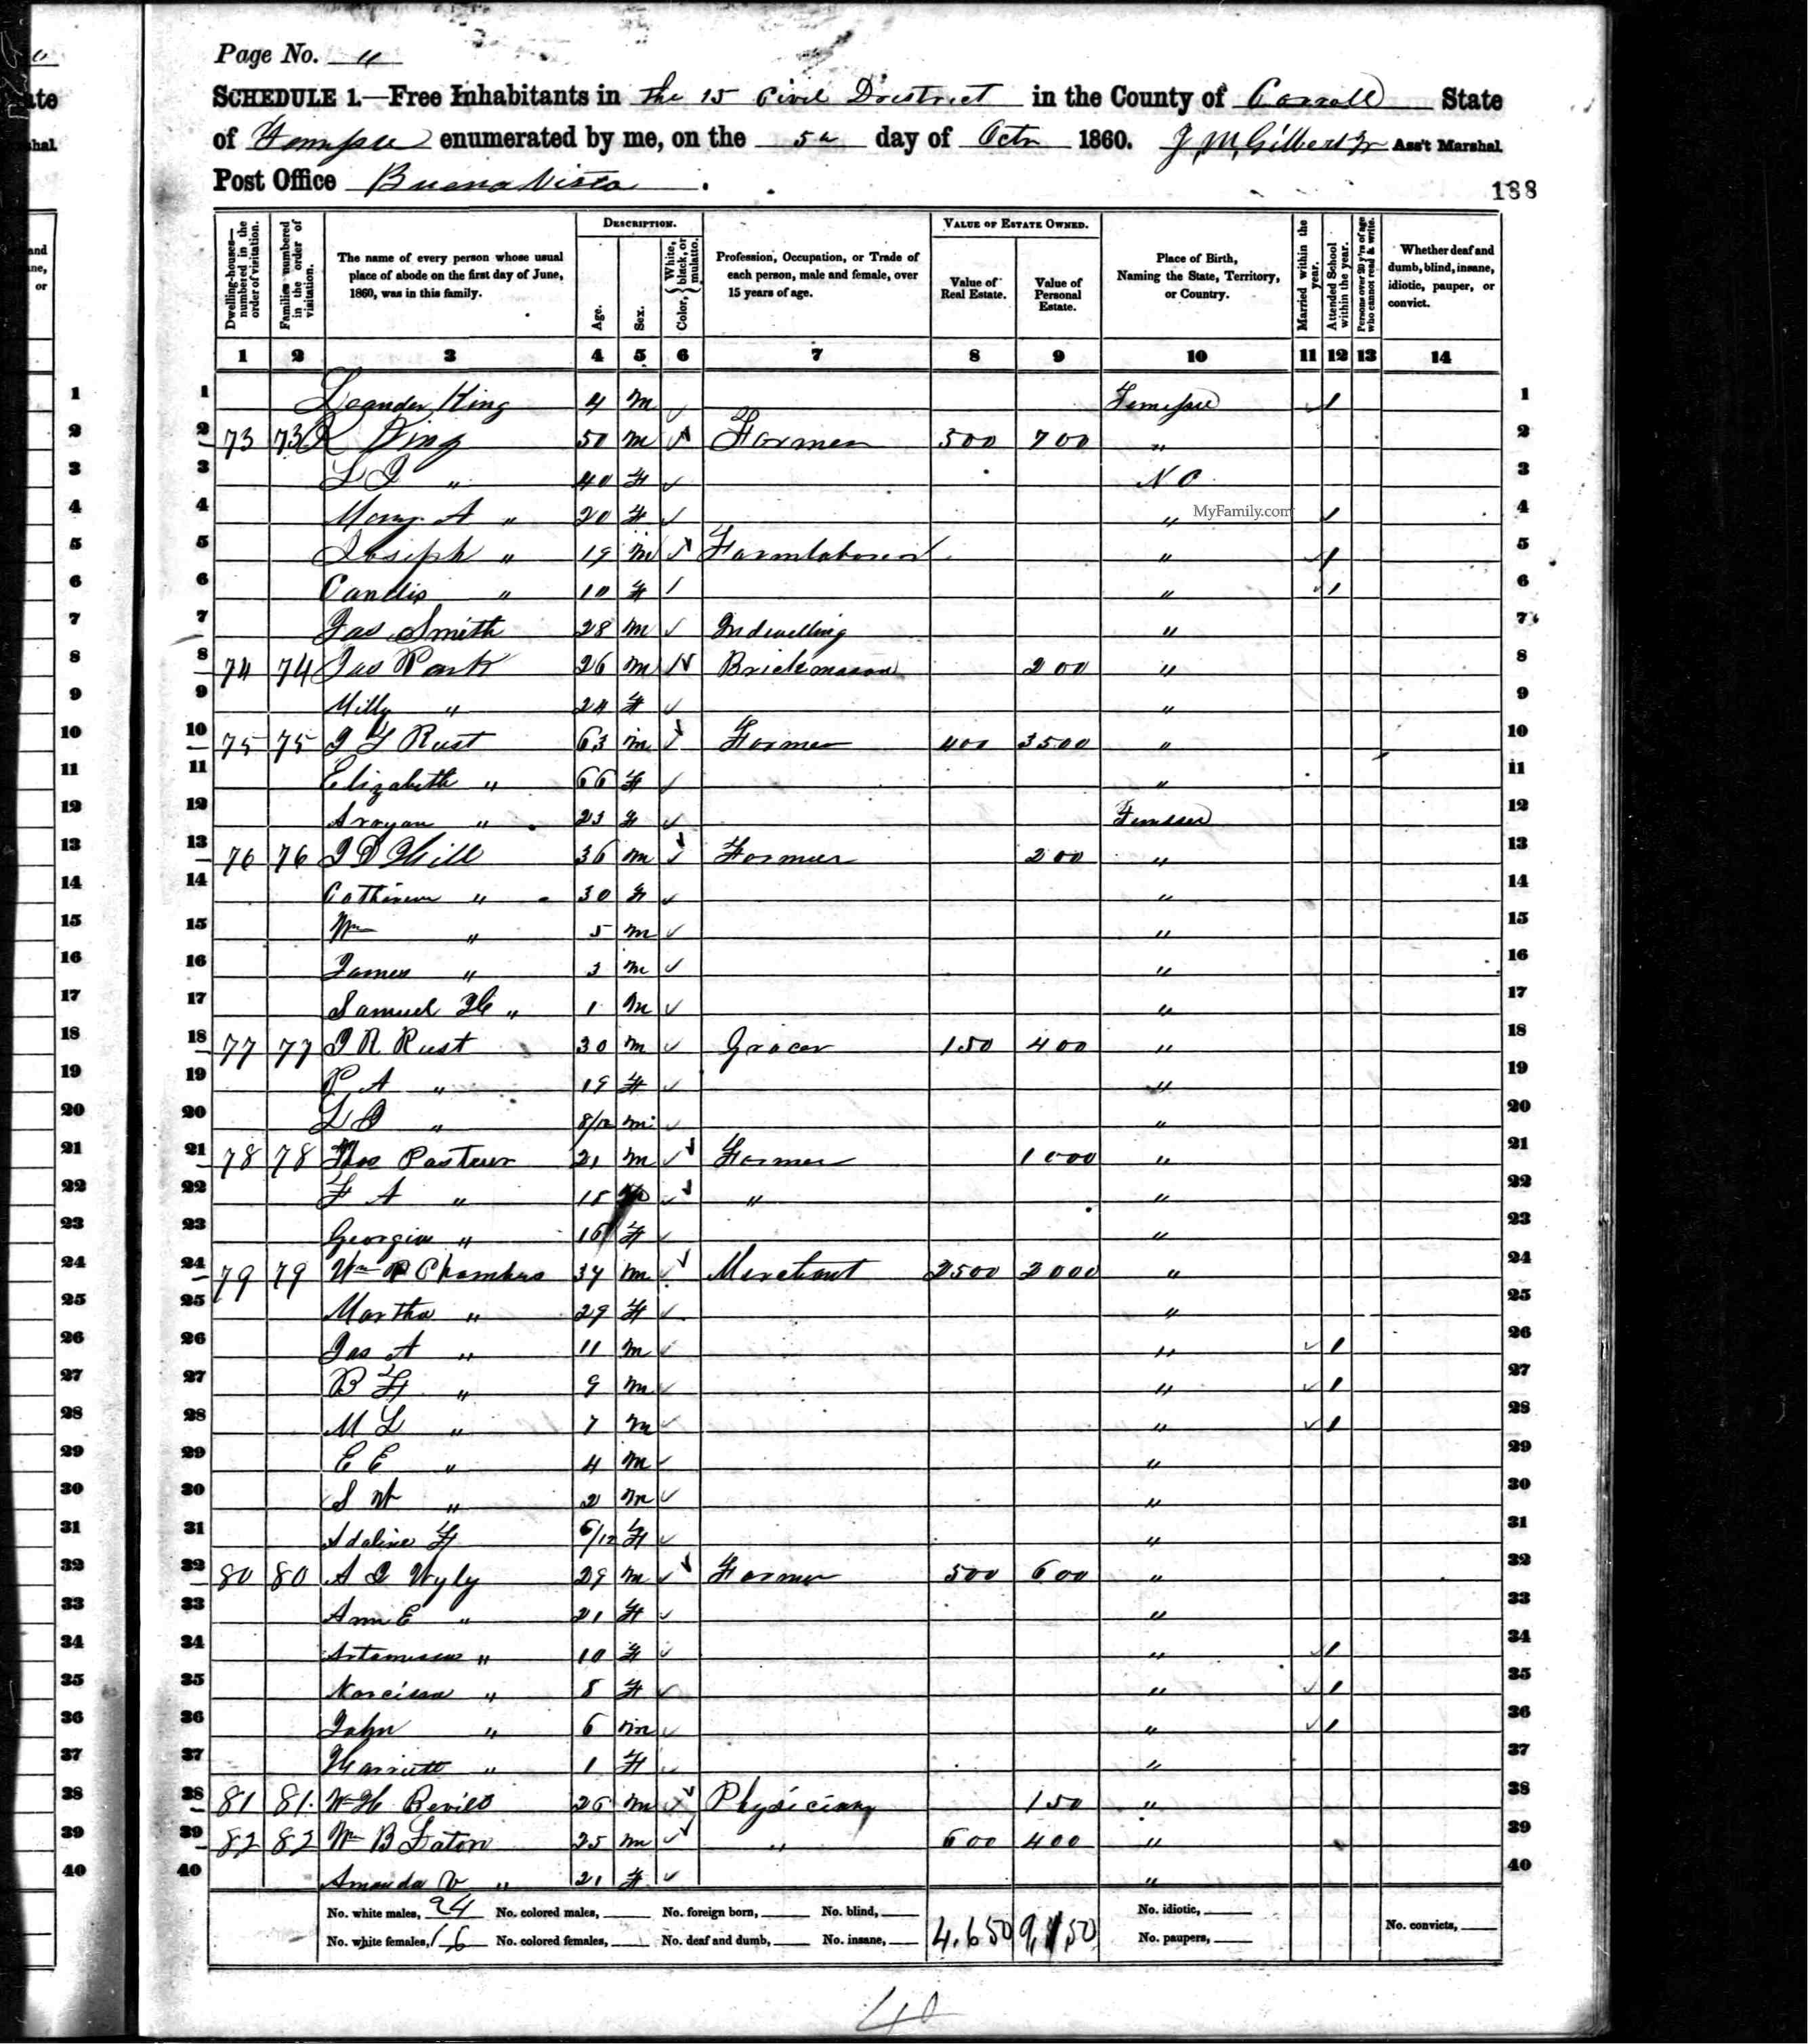 Page No. 11
SCHEDULE 1.—Free Inhabitants in the 15 Civil District in the County of Carroll State
of Tennessee enumerated by me, on the 5th day of Octr 1860. J. M. Gilbert Jr Ass't Marshal.
Post Office Buena Vista
188
Dwelling-houses—numbered in the order of visitation. Families numbered in the order of visitation. The name of every person whose usual place of abode on the first day of June, 1860, was in this family. DESCRIPTION. Age. Sex. Color, { White, black, or mulatto. Profession, Occupation, or Trade of each person, male and female, over 15 years of age. VALUE OF ESTATE OWNED. Value of Real Estate. Value of Personal Estate. Place of Birth, Naming the State, Territory, or Country. Married within the year. Attended School within the year. Persons over 20 y'rs of age who cannot read & write. Whether deaf and dumb, blind, insane, idiotic, pauper, or convict.
1 2 3 4 5 6 7 8 9 10 11 12 13 14
1 Leander King 4 m ✓ Tennessee ✓ / 1
2 73 73 King 50 m ✓ Farmer 500 700 " 2
3 L J " 40 F ✓ N C 3
4 Mary A " 20 F ✓ " / 4
MyFamily.com
5 Joseph " 19 m ✓ Farmlaborer " ✓ / 5
6 Candis " 10 F / " ✓ / 6
7 Jas Smith 28 m ✓ Indwelling " 7
8 74 74 Jas Park 26 m ✓ Brickmason 200 " 8
9 Milly " 24 F ✓ " 9
10 75 75 J Y Rust 63 m ✓ Farmer 400 3500 " 10
11 Elizabeth " 66 F ✓ " 11
12 Arayan " 23 F ✓ Tennessee 12
13 76 76 J D Hill 36 m ✓ Farmer 200 " 13
14 Catherine " 30 F ✓ " 14
15 Wm " 5 m ✓ " 15
16 James " 3 m ✓ " 16
17 Samuel H " 1 m ✓ " 17
18 77 77 J R Rust 30 m ✓ Grocer 150 400 " 18
19 P A " 19 F ✓ " 19
20 L " 8/12 m ✓ " 20
21 78 78 Thos Pasteur 21 m ✓ Farmer 1000 " 21
22 F A " 18 ✓ " " 22
23 Georgia " 16 F ✓ " 23
24 79 79 Wm Chambers 34 m ✓ Merchant 2500 2000 " 24
25 Martha " 29 F ✓ " 25
26 Jas A " 11 m ✓ " ✓ / 26
27 B F " 9 m ✓ " ✓ / 27
28 M L " 7 m ✓ " ✓ / 28
29 E E " 4 m ✓ " 29
30 S W " 2 m ✓ " 30
31 Adaline F 6/12 F ✓ " 31
32 80 80 A J Wyly 29 m ✓ Farmer 500 600 " 32
33 Ann E " 21 F ✓ " 33
34 Artemissa " 10 F ✓ " ✓ / 34
35 Narcissa " 8 F ✓ " ✓ / 35
36 John " 6 m ✓ " ✓ / 36
37 Harriett " 1 F ✓ " 37
38 81 81 Wm H Bevill 26 m ✓ Physician 150 " 38
39 82 82 Wm B Eaton 25 m ✓ " 600 400 " 39
40 Amanda V " 21 F ✓ " 40
No. white males, 24 No. colored males, No. foreign born, No. blind, No. idiotic,
No. white females, 16 No. colored females, No. deaf and dumb, No. insane, 4,650 9,150 No. paupers, No. convicts,
40